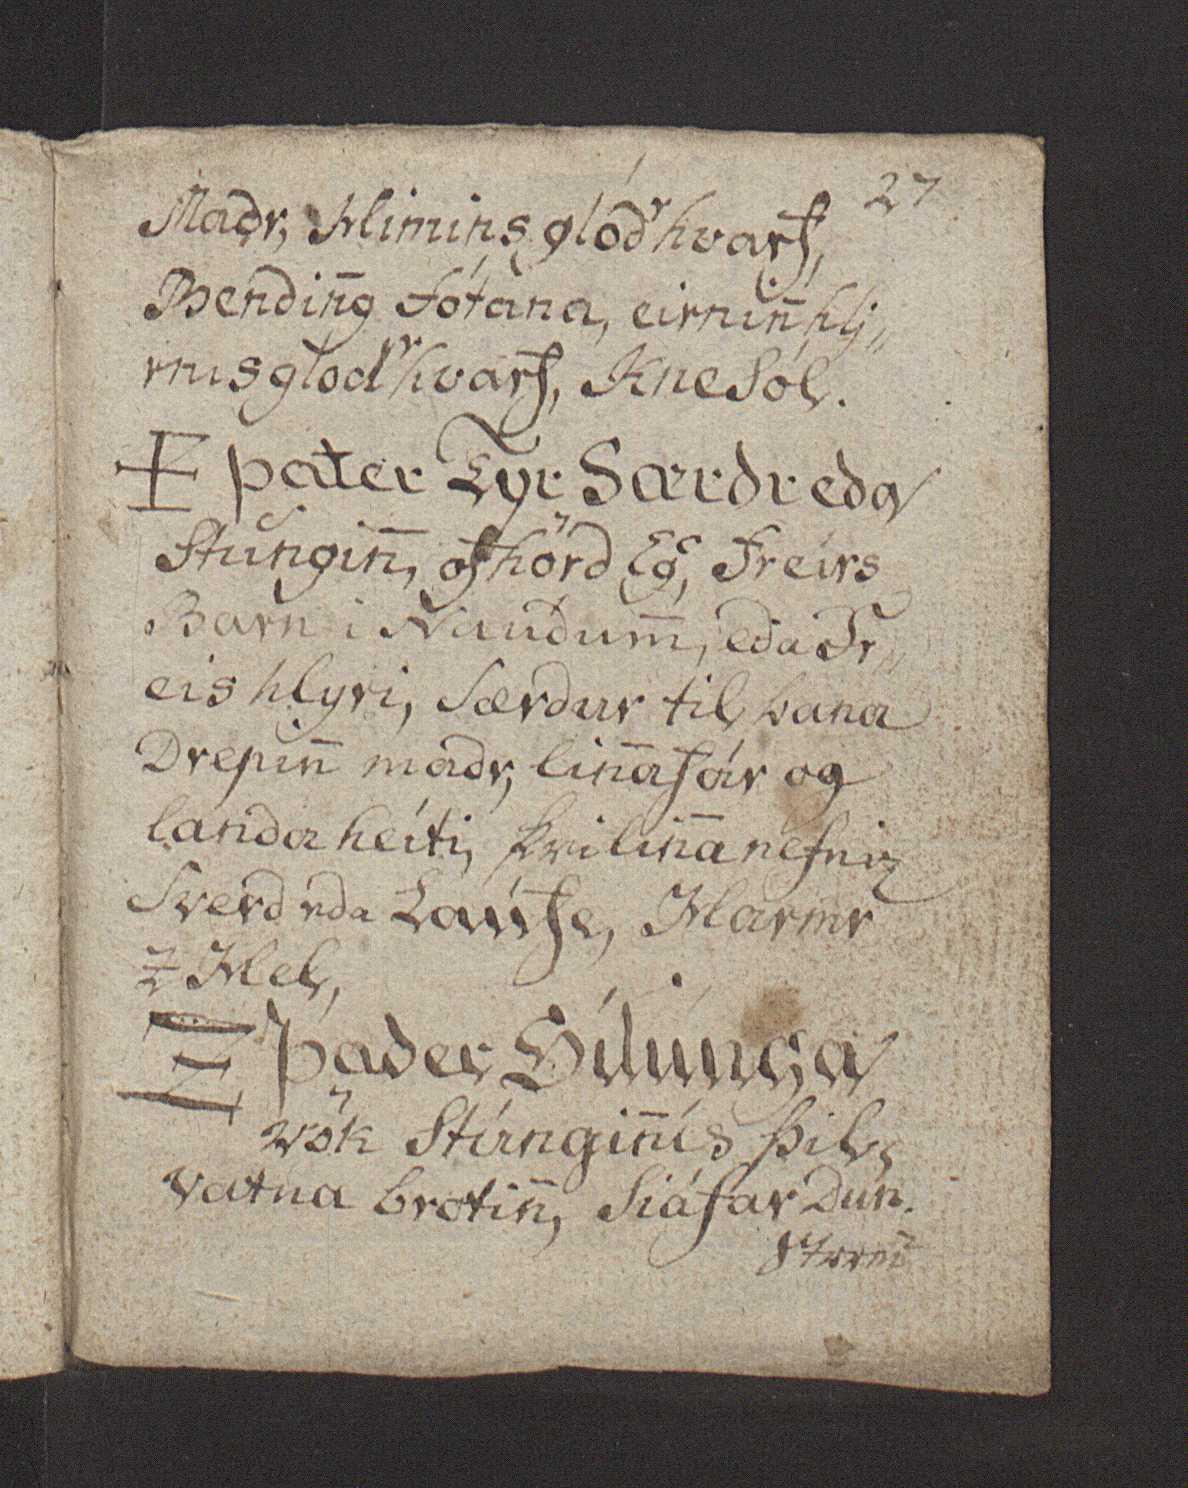 27
Madr, Himins glód hvarf,
Bendin̄g Fótana, eirnin̄ hlj„
rnis glod hvarf, Kne Sól.
þater Tyr Særdr eda
Stunginn̄, of hörd Eg, Freirs
Barn i Naudum̄, eda Fr„
eis hlyri, Særdur til bana
Drepin̄ madr, lin̄a fár og
landa heiti, þvi lin̄a nefniz
Sverd eda Laufe, Harmr
Z Hel,
þader Hilmings
vök Stúngin̄ Ís þil,
vatna brotin̄, Siáfar Dun.